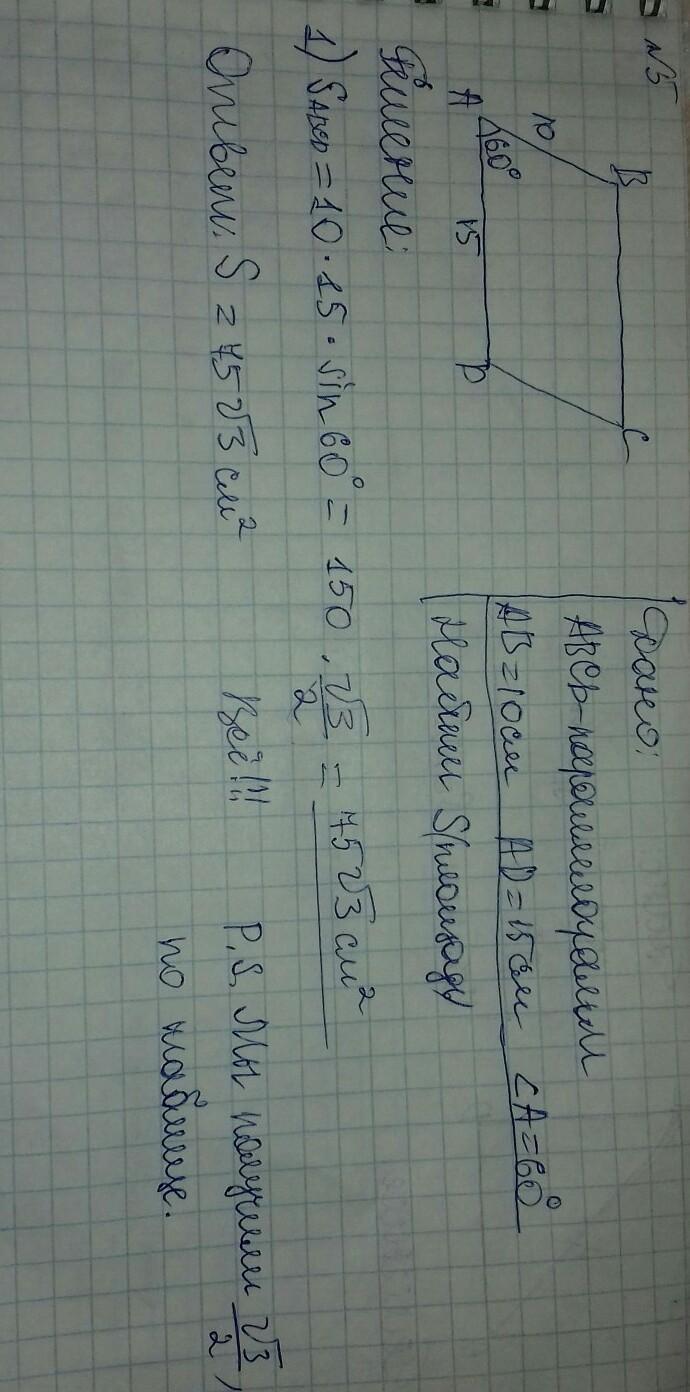 №5
B
C
10
60°
A
15
D
Дано:
ABCD-параллелограмм
AB=10см AD=15см <A=60°
Найти S(площадь)
Решение:
1) SABCD=10·15·sin60°= 150·√3/2 = 75√3 см²
Ответ: S=75√3 см² Всё!!! P.S. Мы получили √3/2,
по таблице.